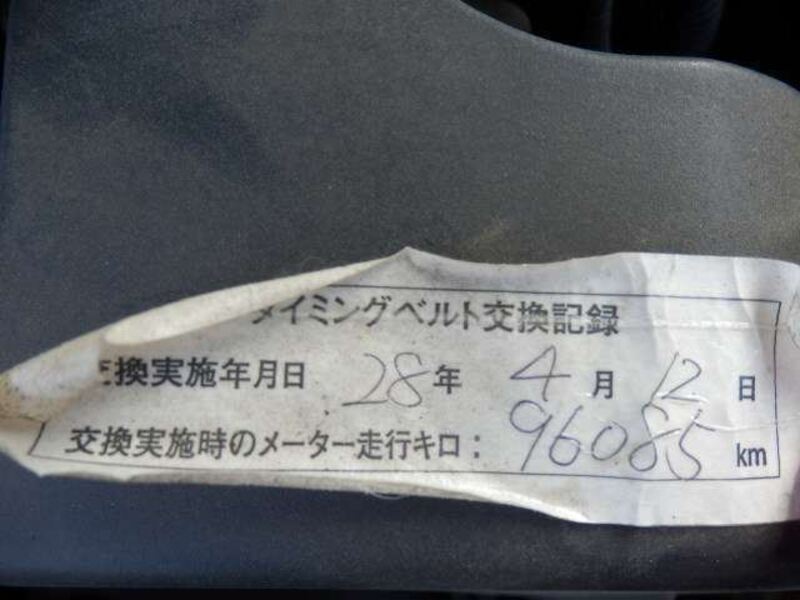 タイミングベルト交換記録
交換実施年月日 28年 4月 12日
交換実施時のメーター走行キロ: 96085 km